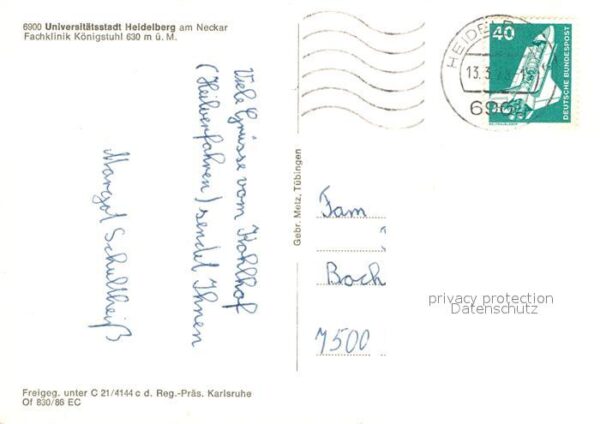 6900 Universitätsstadt Heidelberg am Neckar
Fachklinik Königstuhl 630 m ü. M.
Viele Grüsse vom Kohlhof
(Heilverfahren) sendet Ihnen
Margot Schultheiß
Freigeg. unter C 21/4144 c d. Reg.-Präs. Karlsruhe
Of 830/86 EC
Gebr. Metz, Tübingen
40
DEUTSCHE BUNDESPOST
Fam
Bock
7500
privacy protection
Datenschutz